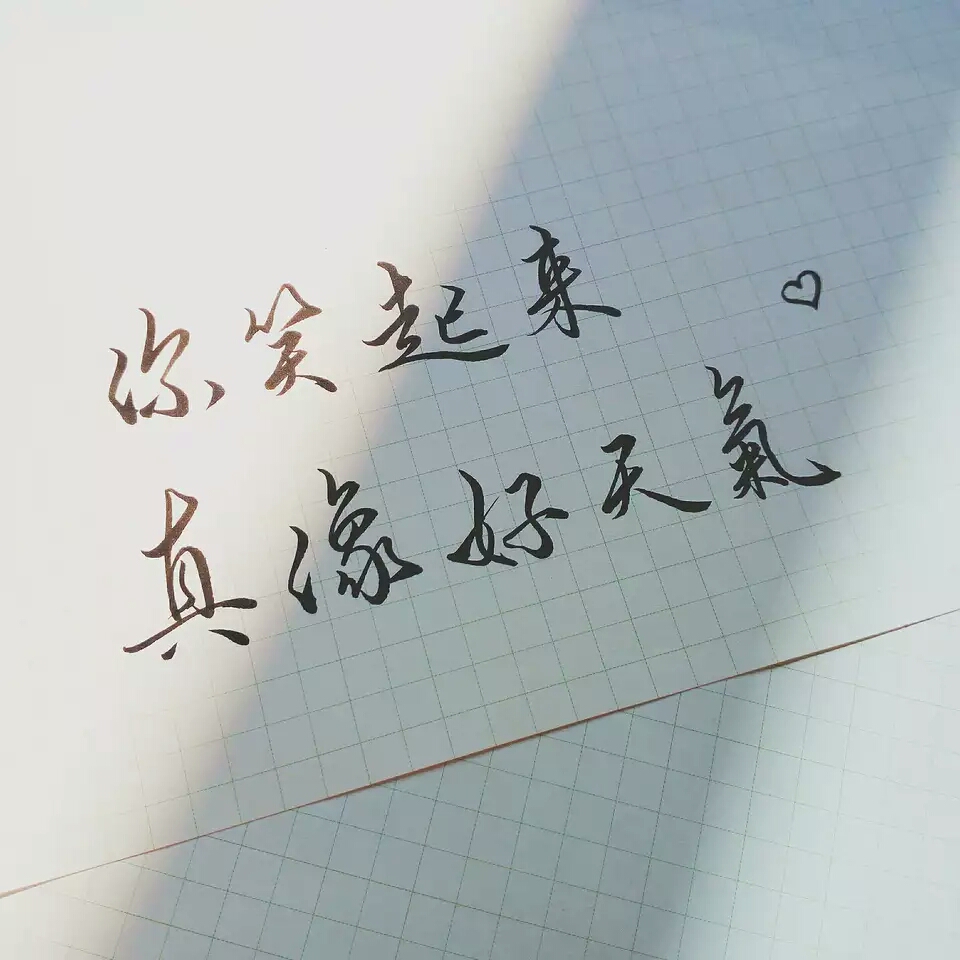 你笑起来
真像好天氣